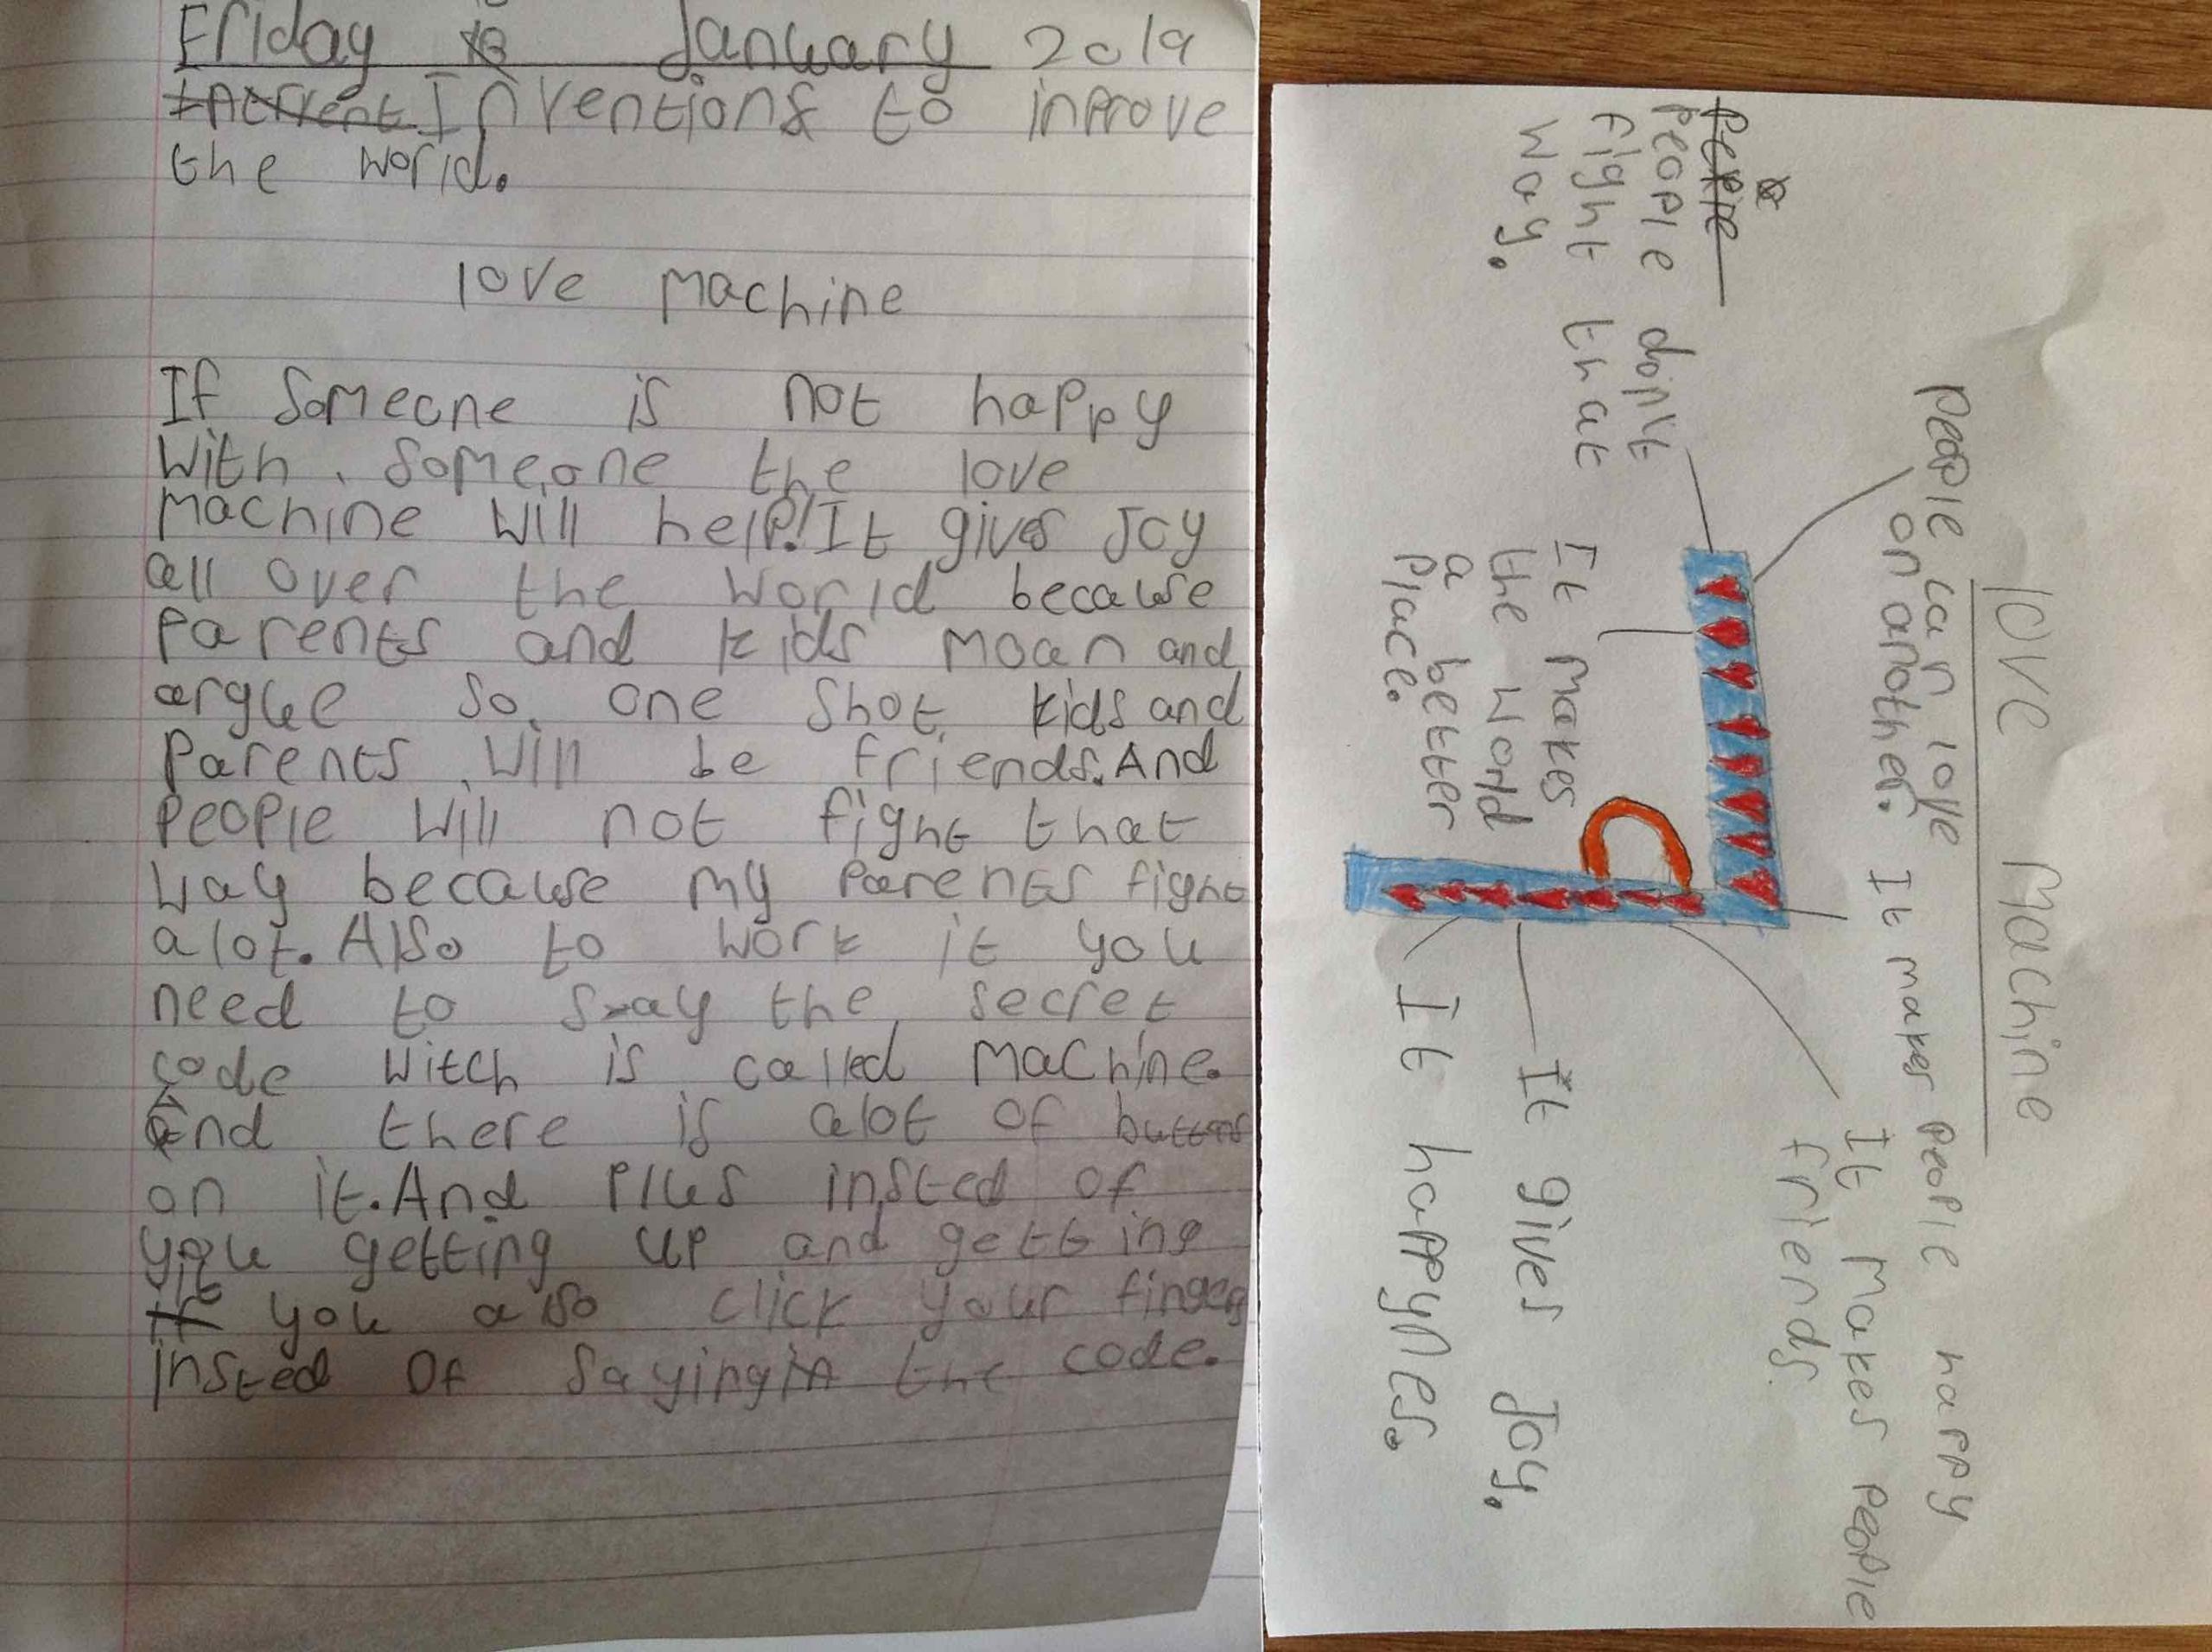 Friday January 2019
Inventions to inprove
the world.
love machine
If someone is not happy
with someone the love
machine will help! It gives Joy
all over the world because
parents and kids moan and
argue so one shot kids and
parents will be friends. And
people will not fight that
way because my parents fight
alot. Also to work it you
need to say the secret
code witch is called machine.
And there is alot of buttons
on it. And plus insted of
you getting up and getting
it you also click your fingers
insted of saying the code.
love machine
people can love
on another.
It makes people happy
people don't
fight that
way.
It makes
the world
a better
place.
It makes people
friends.
It gives Joy.
It happynes.